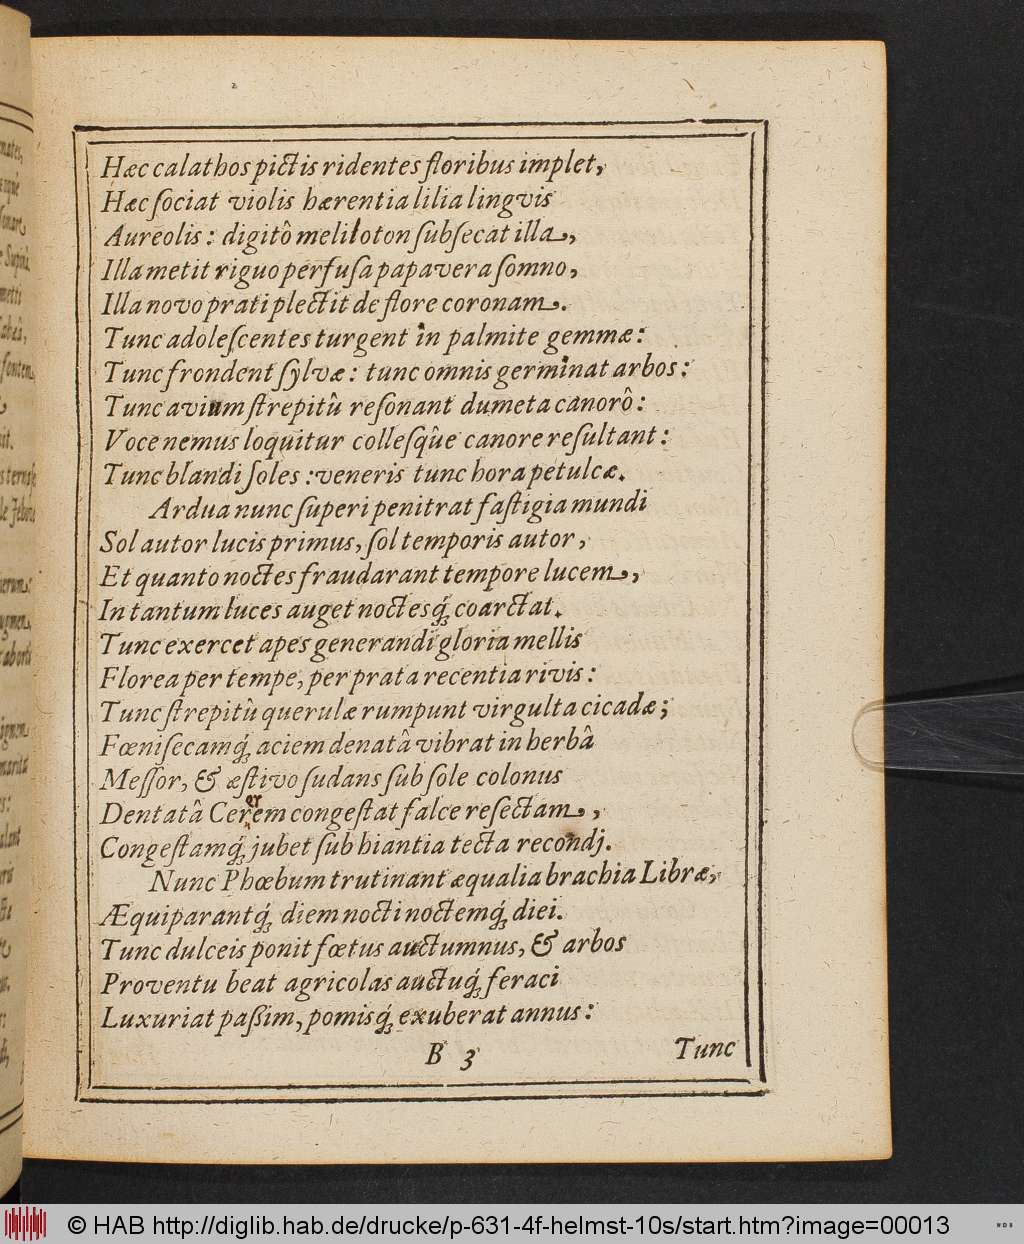 Hæc calathos pictis ridentes floribus implet,
Hæc ſociat violis hærentia lilia lingvis
Aureolis: digitô meliloton ſubſecat illa,
Illa metit riguo perfuſa papavera ſomno,
Illa novo prati plectit de flore coronam.
Tunc adoleſcentes turgent in palmite gemmæ:
Tunc frondent ſylvæ: tunc omnis germinat arbos:
Tunc avium ſtrepitû reſonant dumeta canorô:
Voce nemus loquitur colleſqûe canore reſultant:
Tunc blandi ſoles: veneris tunc hora petulcæ.
Ardua nunc ſuperi penitrat faſtigia mundi
Sol autor lucis primus, ſol temporis autor,
Et quanto noctes fraudarant tempore lucem,
In tantum luces auget noctesq́; coarctat.
Tunc exercet apes generandi gloria mellis
Florea per tempe, per prata recentia rivis:
Tunc ſtrepitù querulæ rumpunt virgulta cicadæ;
Fœniſecamq́; aciem denatâ vibrat in herbâ
Meſſor, & æſtivo ſudans ſub ſole colonus
Dentatâ Cererem congeſtat falce reſectam,
Congeſtamq́; jubet ſub hiantia tecta recondj.
Nunc Phœbum trutinant æqualia brachia Libræ,
Æquiparantq́; diem nocti noctemq́; diei.
Tunc dulceis ponit fœtus auctumnus, & arbos
Proventu beat agricolas auctuq́; feraci
Luxuriat paßim, pomisq́; exuberat annus:
B 3 Tunc
© HAB http://diglib.hab.de/drucke/p-631-4f-helmst-10s/start.htm?image=00013